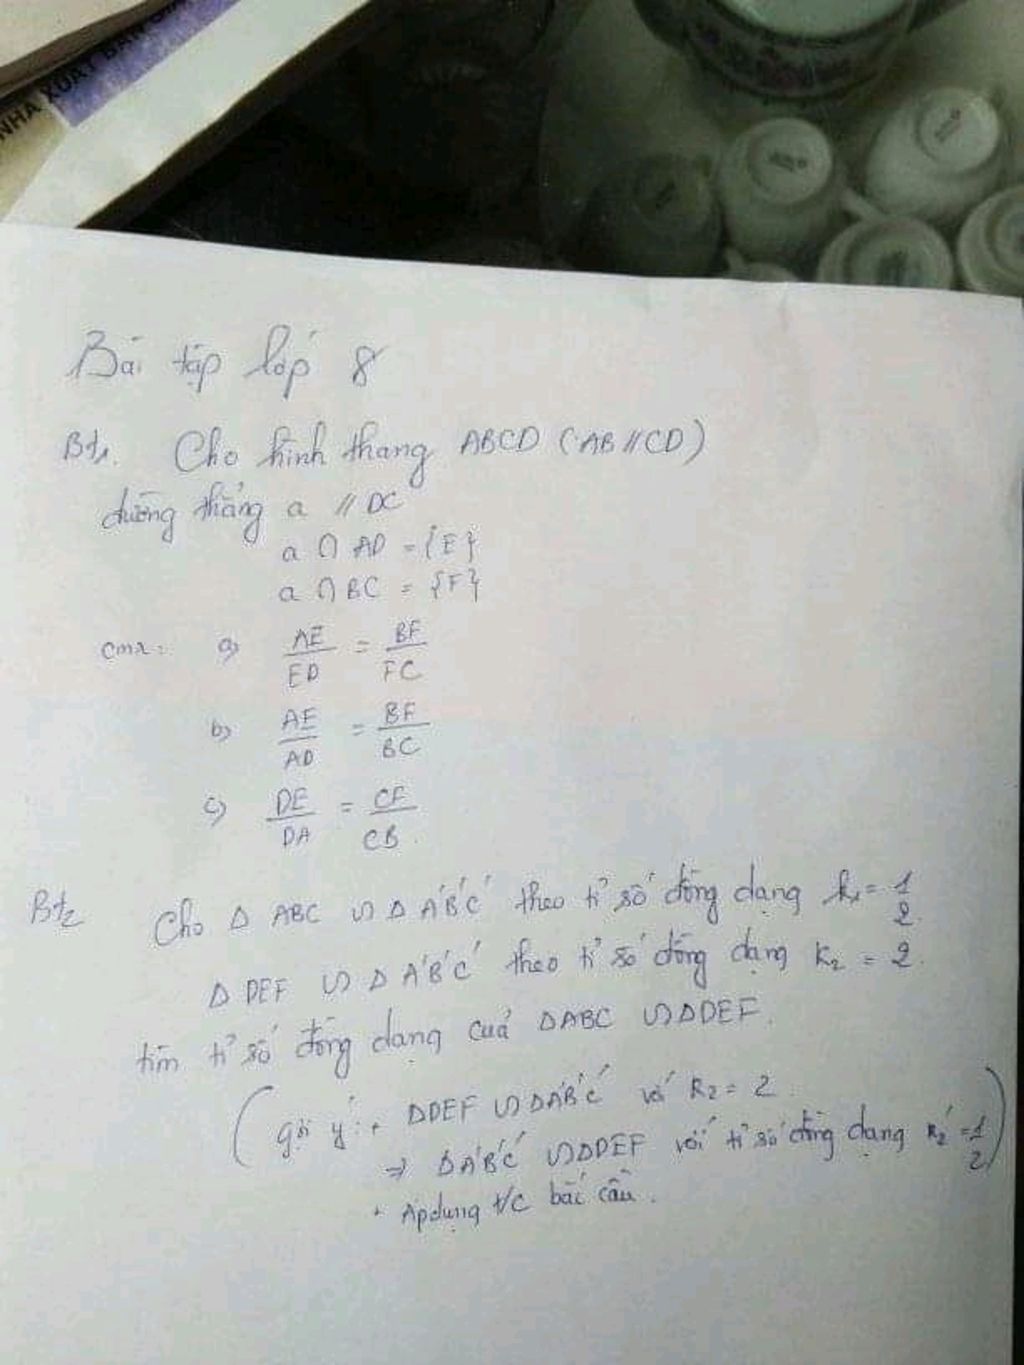 NHÀ XUẤT BẢN
Bài tập lớp 8
Bt1. Cho hình thang ABCD (AB // CD)
đường thẳng a // DC
a ∩ AD = {E}
a ∩ BC = {F}
cmr: a) AE/ED = BF/FC
b) AE/AD = BF/BC
c) DE/DA = CF/CB.
Bt2 Cho Δ ABC ᔕ Δ A'B'C' theo tỉ số đồng dạng k1 = 1/2.
Δ DEF ᔕ Δ A'B'C' theo tỉ số đồng dạng K2 = 2.
tìm tỉ số đồng dạng của ΔABC ᔕ ΔDEF.
(gợi ý: + ΔDEF ᔕ ΔA'B'C' với K2 = 2.
=> ΔA'B'C' ᔕ ΔDEF với tỉ số đồng dạng K2' = 1/2)
+ Áp dụng t/c bắc cầu.